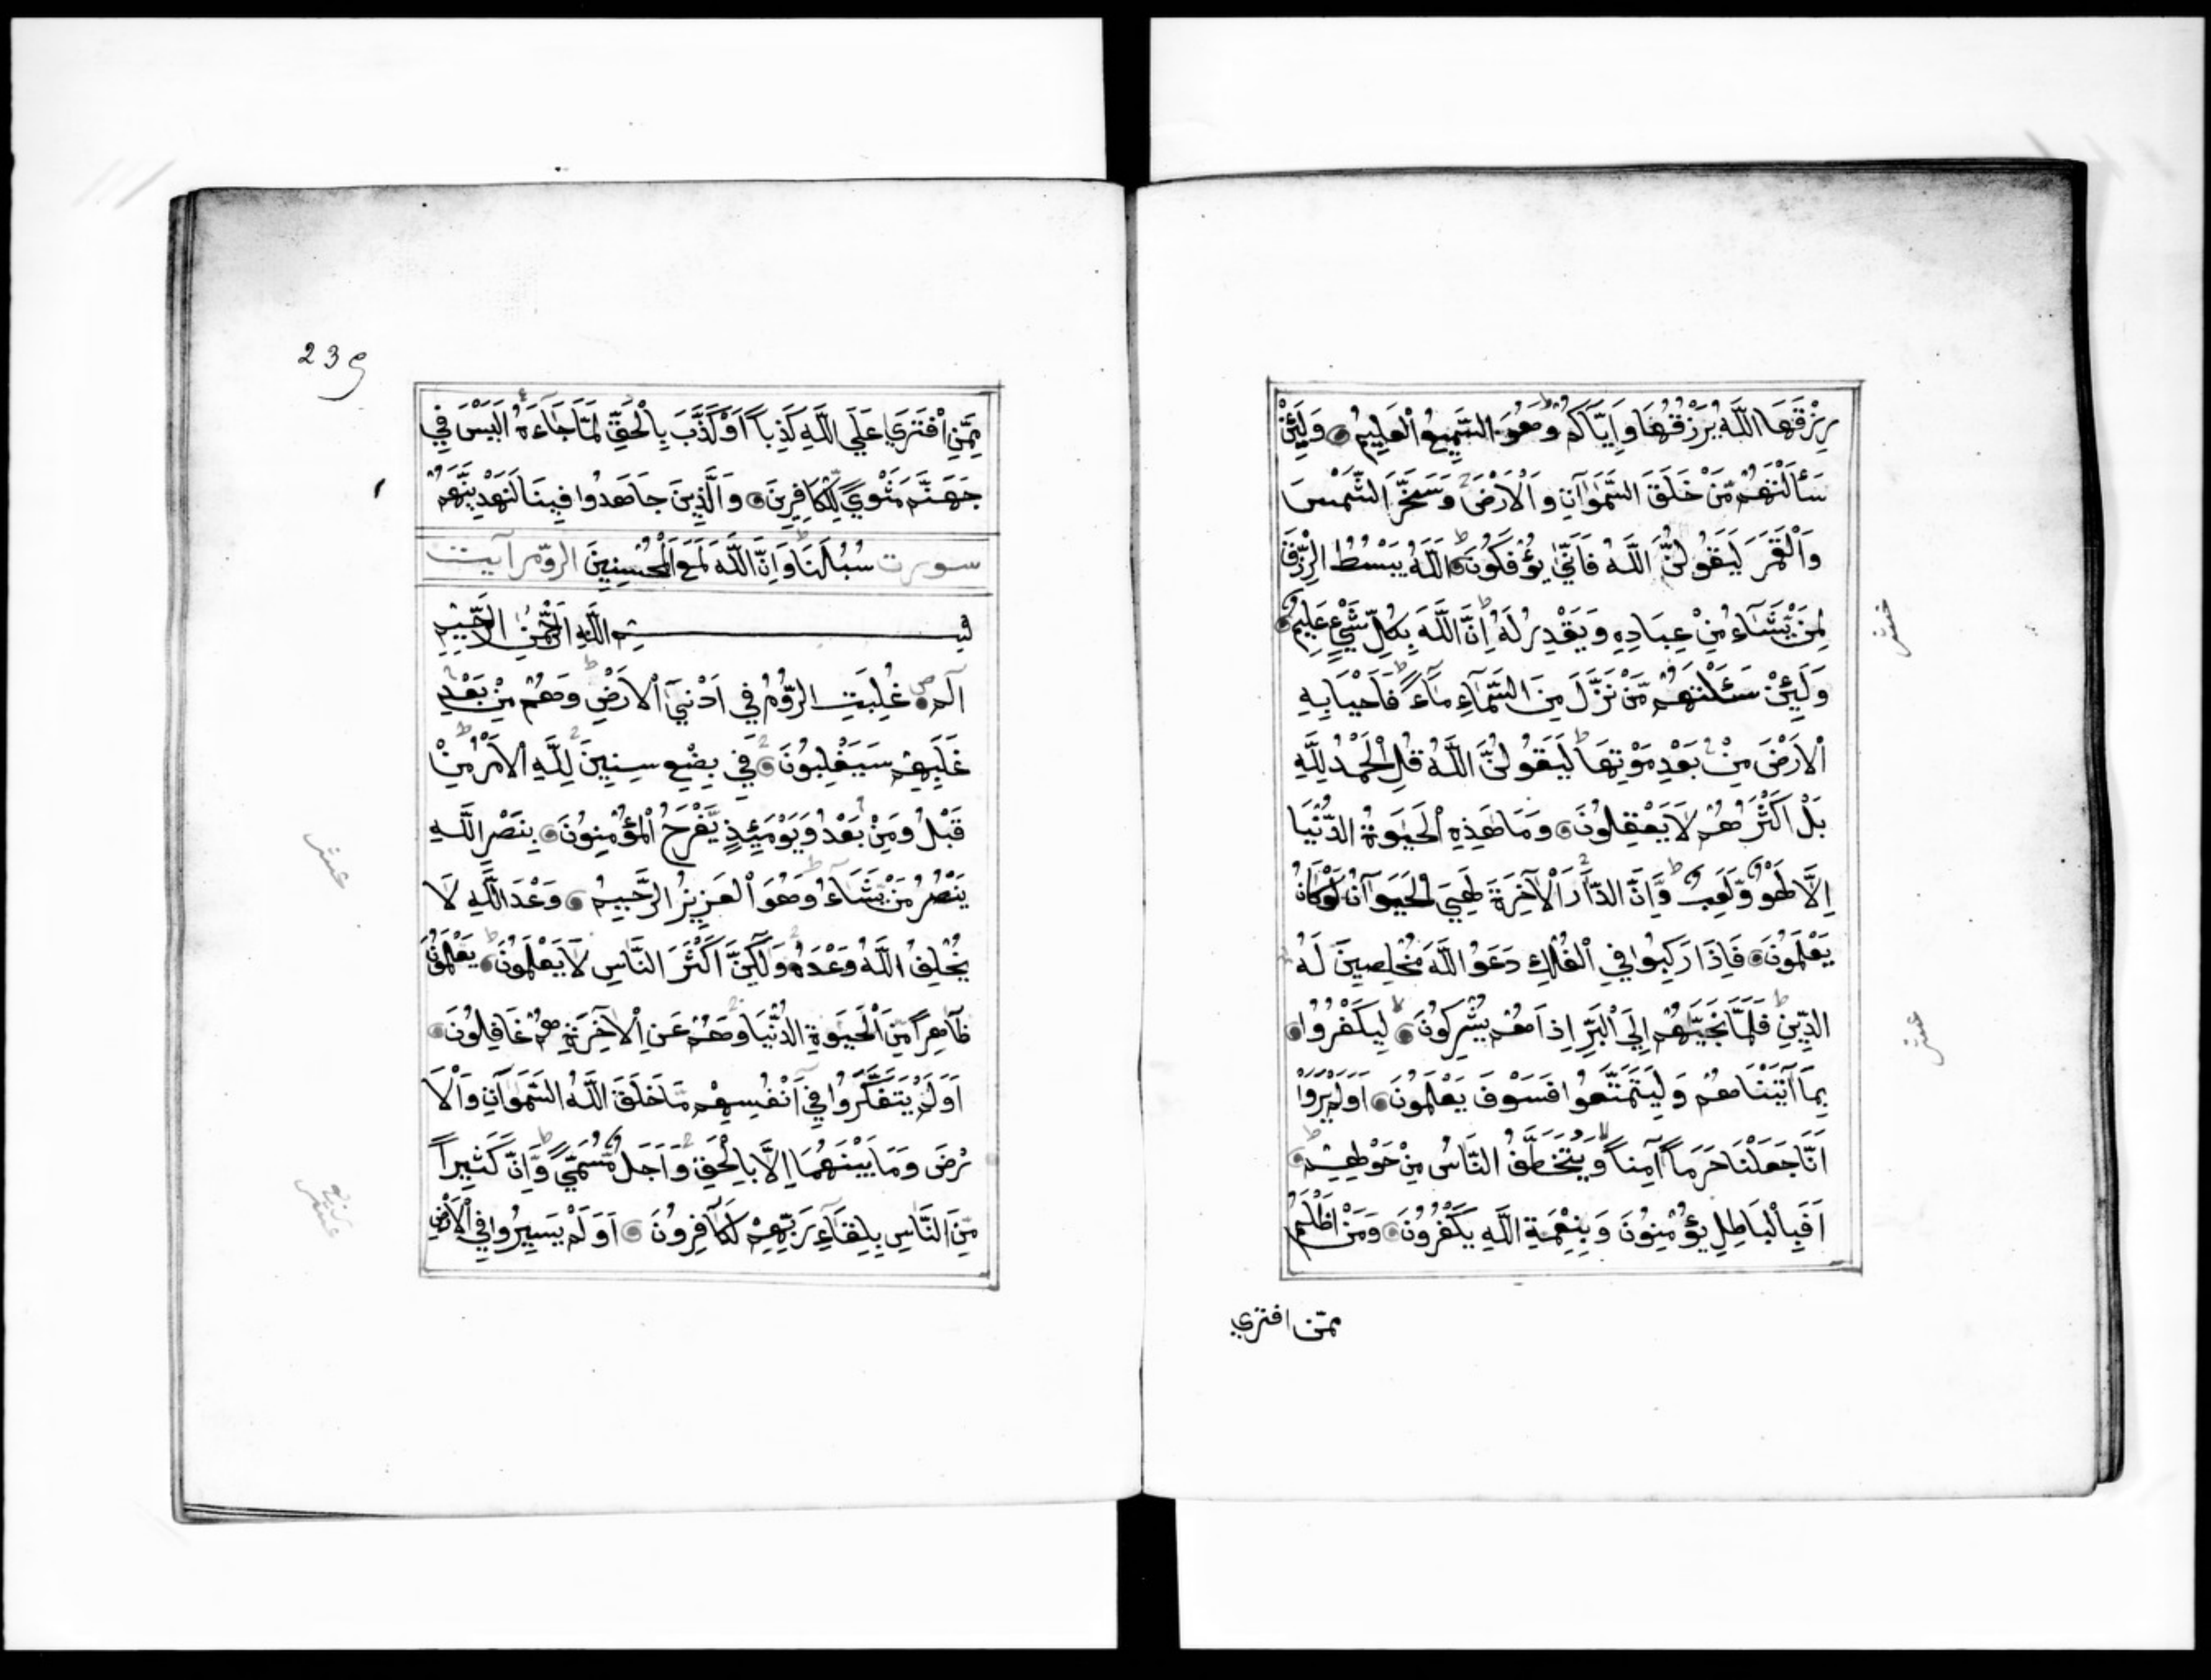 رِزْقَهَا اللَّهُ يَرْزُقُهَا وَاِيَّاكُمْ وَهُوَ السَّمِيعُ الْعَلِيمُ وَلَئِنْ
سَأَلْتَهُمْ مَّنْ خَلَقَ السَّمٰوَاتِ وَالْاَرْضَ وَسَخَّرَ الشَّمْسَ
وَالْقَمَرَ لَيَقُولُنَّ اللَّهُ فَاَنّٰي يُؤْفَكُونَ اَللَّهُ يَبْسُطُ الرِّزْقَ
لِمَنْ يَّشَآءُ مِنْ عِبَادِهِ وَيَقْدِرُ لَهُ اِنَّ اللَّهَ بِكُلِّ شَيْءٍ عَلِيمٌ
وَلَئِنْ سَئَلْتَهُمْ مَّنْ نَزَّلَ مِنَ السَّمَآءِ مَآءً فَاَحْيَا بِهِ
الْاَرْضَ مِنْ بَعْدِ مَوْتِهَا لَيَقُولُنَّ اللَّهُ قُلِ الْحَمْدُ لِلَّهِ
بَلْ اَكْثَرُهُمْ لَا يَعْقِلُونَ وَمَا هَذِهِ الْحَيٰوةُ الدُّنْيَا
اِلَّا لَهْوٌ وَّلَعِبٌ وَّاِنَّ الدَّارَ الْآخِرَةَ لَهِيَ الْحَيَوَانُ لَوْ كَانُوا
يَعْلَمُونَ فَاِذَا رَكِبُوا فِي الْفُلْكِ دَعَوُا اللَّهَ مُخْلِصِينَ لَهُ
الدِّينَ فَلَمَّا نَجَّيٰهُمْ اِلَى الْبَرِّ اِذَا هُمْ يُشْرِكُونَ لِيَكْفُرُوا
بِمَآ آتَيْنَاهُمْ وَلِيَتَمَتَّعُوا فَسَوْفَ يَعْلَمُونَ اَوَلَمْ يَرَوْا
اَنَّا جَعَلْنَا حَرَماً آمِناً وَّيُتَخَطَّفُ النَّاسُ مِنْ حَوْلِهِمْ
اَفَبِالْبَاطِلِ يُؤْمِنُونَ وَبِنِعْمَةِ اللَّهِ يَكْفُرُونَ وَمَنْ اَظْلَمُ
ممّن افتري
خمس
عشر
239
مِمَّنِ افْتَرَي عَلَي اللَّهِ كَذِباً اَوْ كَذَّبَ بِالْحَقِّ لَمَّا جَآءَهُ اَلَيْسَ فِي
جَهَنَّمَ مَثْوًي لِّلْكَافِرِينَ وَالَّذِينَ جَاهَدُوا فِينَا لَنَهْدِيَنَّهُمْ
سورت سُبُلَنَا وَاِنَّ اللَّهَ لَمَعَ الْمُحْسِنِينَ الروّم آيت
بِسْمِ اللَّهِ الرَّحْمٰنِ الرَّحِيمِ
آلم غُلِبَتِ الرُّومُ فِي اَدْنَي الْاَرْضِ وَهُمْ مِنْ بَعْدِ
غَلَبِهِمْ سَيَغْلِبُونَ فِي بِضْعِ سِنِينَ لِلَّهِ الْاَمْرُ مِنْ
قَبْلُ وَمِنْ بَعْدُ وَيَوْمَئِذٍ يَّفْرَحُ الْمُؤْمِنُونَ بِنَصْرِ اللَّهِ
يَنْصُرُ مَنْ يَّشَآءُ وَهُوَ الْعَزِيزُ الرَّحِيمُ وَعْدَ اللَّهِ لَا
يُخْلِفُ اللَّهُ وَعْدَهُ وَلٰكِنَّ اَكْثَرَ النَّاسِ لَا يَعْلَمُونَ يَعْلَمُونَ
ظَاهِراً مِّنَ الْحَيٰوةِ الدُّنْيَا وَهُمْ عَنِ الْآخِرَةِ هُمْ غَافِلُونَ
اَوَلَمْ يَتَفَكَّرُوا فِي اَنْفُسِهِمْ مَا خَلَقَ اللَّهُ السَّمٰوَاتِ وَالْاَ
رْضَ وَمَا بَيْنَهُمَا اِلَّا بِالْحَقِّ وَاَجَلٍ مُّسَمًّي وَّاِنَّ كَثِيراً
مِّنَ النَّاسِ بِلِقَآءِ رَبِّهِمْ لَكَافِرُونَ اَوَلَمْ يَسِيرُوا فِي الْاَرْضِ
عشر
ربع
عشر